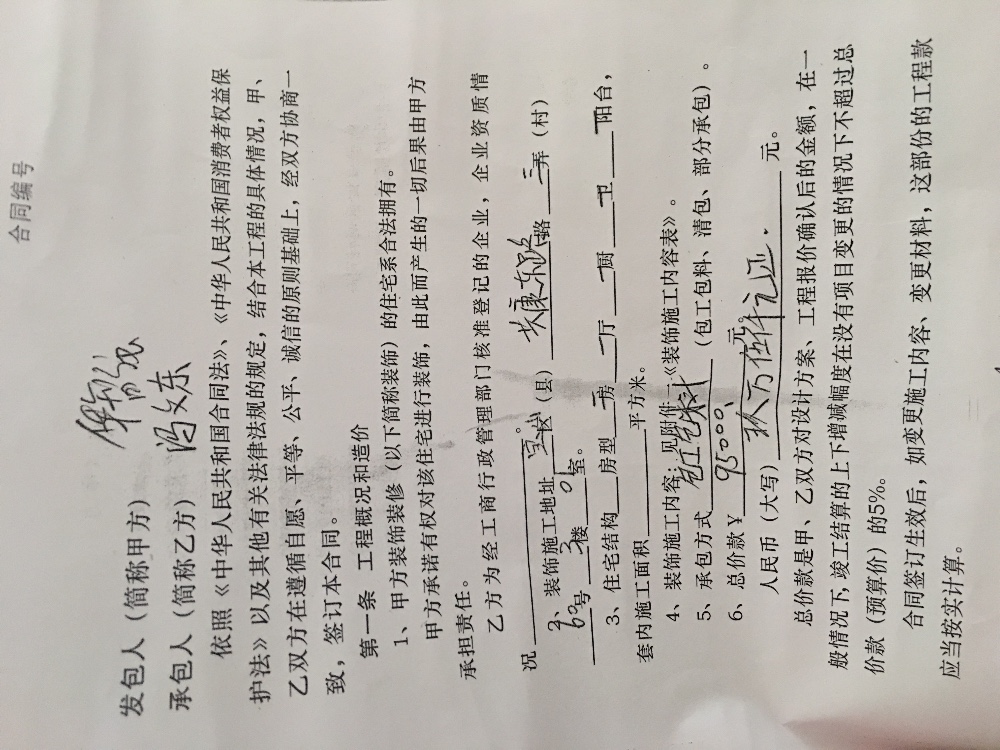 合同编号
发包人（简称甲方）
承包人（简称乙方）冯文东
依照《中华人民共和国合同法》、《中华人民共和国消费者权益保
护法》以及其他有关法律法规的规定，结合本工程的具体情况，甲、
乙双方在遵循自愿、平等、公平、诚信的原则基础上，经双方协商一
致，签订本合同。
第一条 工程概况和造价
1、甲方装饰装修（以下简称装饰）的住宅系合法拥有。
甲方承诺有权对该住宅进行装饰，由此而产生的一切后果由甲方
承担责任。
乙方为经工商行政管理部门核准登记的企业，企业资质情
况 。
2、装饰施工地址 宝山 区（县） 共康东路 路 三 弄（村）
60 号 3 楼 01 室。
3、住宅结构 房型 房 一 厅 一 厨 一 卫 一 阳台，
套内施工面积 平方米。
4、装饰施工内容：见附件一《装饰施工内容表》。
5、承包方式 包工包料 （包工包料、清包、部分承包）。
6、总价款￥ 95000 元。
人民币（大写） 玖万伍仟元正. 元。
总价款是甲、乙双方对设计方案、工程报价确认后的金额，在一
般情况下，竣工结算的上下增减幅度在没有项目变更的情况下不超过总
价款（预算价）的5%。
合同签订生效后，如变更施工内容、变更材料，这部份的工程款
应当按实计算。